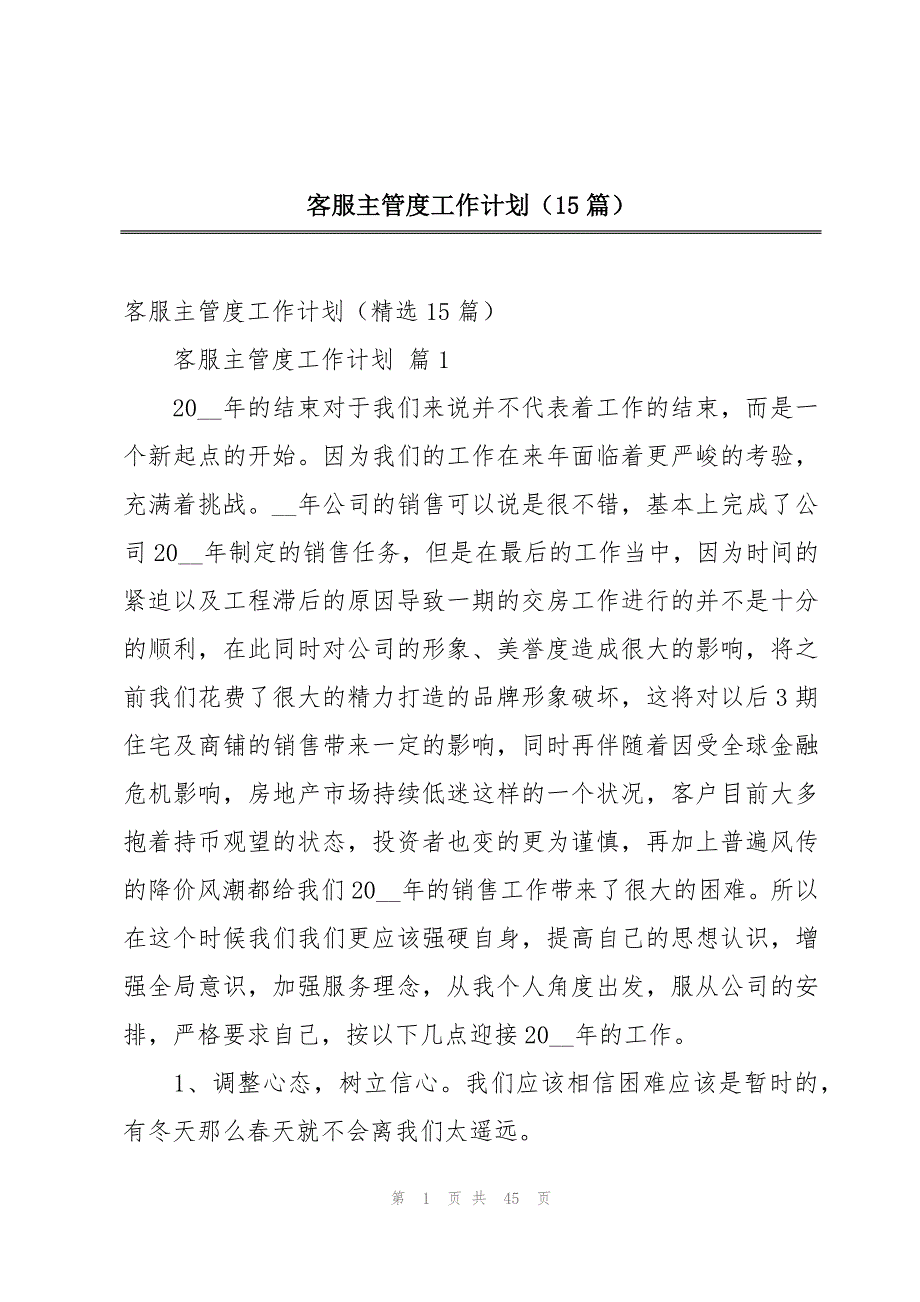 客服主管度工作计划（15篇）
客服主管度工作计划（精选15篇）
客服主管度工作计划 篇1
20__年的结束对于我们来说并不代表着工作的结束，而是一
个新起点的开始。因为我们的工作在来年面临着更严峻的考验，
充满着挑战。__年公司的销售可以说是很不错，基本上完成了公
司20__年制定的销售任务，但是在最后的工作当中，因为时间的
紧迫以及工程滞后的原因导致一期的交房工作进行的并不是十分
的顺利，在此同时对公司的形象、美誉度造成很大的影响，将之
前我们花费了很大的精力打造的品牌形象破坏，这将对以后3期
住宅及商铺的销售带来一定的影响，同时再伴随着因受全球金融
危机影响，房地产市场持续低迷这样的一个状况，客户目前大多
抱着持币观望的状态，投资者也变的更为谨慎，再加上普遍风传
的降价风潮都给我们20__年的销售工作带来了很大的困难。所以
在这个时候我们我们更应该强硬自身，提高自己的思想认识，增
强全局意识，加强服务理念，从我个人角度出发，服从公司的安
排，严格要求自己，按以下几点迎接20__年的工作。
1、调整心态，树立信心。我们应该相信困难应该是暂时的，
有冬天那么春天就不会离我们太遥远。
第 1 页 共 45 页